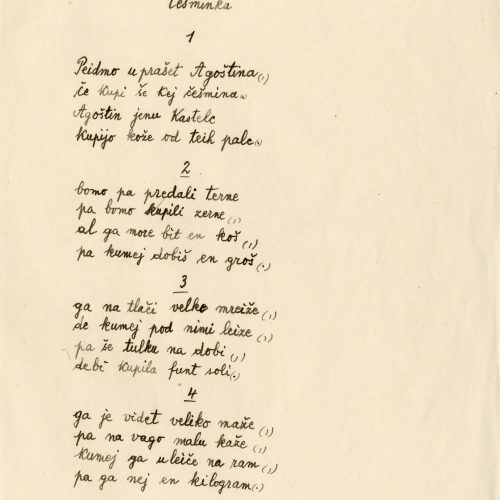 češminka
1
Pejdmo uprašet Agoština(,)
če kupi še kej češmina.
Agoštin jenu Kastelc
Kupijo kože od teih palc(.)
2
bomo pa predali terne
pa bomo kupili zerne(,)
al ga more bit en koš(,)
pa kumej dobiš en groš(.)
3
ga na tlači velke mreiže(,)
de kumej pod nimi leize(,)
pa še tulku na dobi(,)
de bi kupila funt soli(.)
4
ga je videt veliko maže(,)
pa na vago malu kaže(,)
kumej ga uleiče na ram(,)
pa ga nej en kilogram(.)